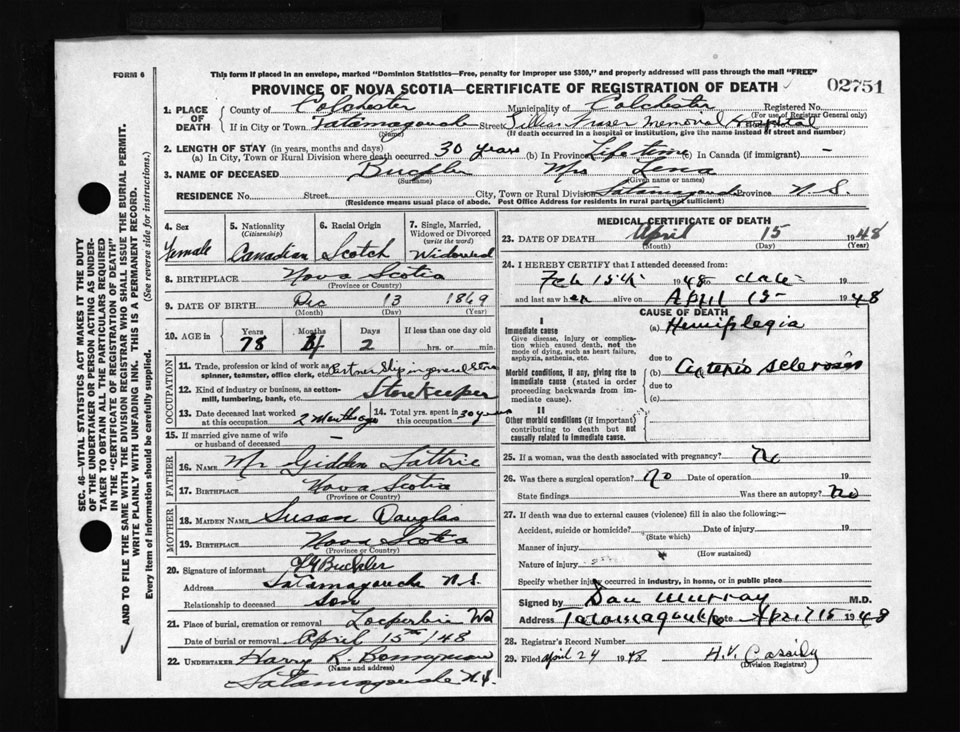 FORM 6
This form if placed in an envelope, marked "Dominion Statistics—Free, penalty for improper use $300," and properly addressed will pass through the mail "FREE"
PROVINCE OF NOVA SCOTIA—CERTIFICATE OF REGISTRATION OF DEATH
02751
1. PLACE OF DEATH
County of Colchester Municipality of Colchester Registered No.
(For use of Registrar General only)
If in City or Town Tatamagouche Street Lillian Fraser Memorial Hospital
(Name) (If death occurred in a hospital or institution, give the name instead of street and number)
2. LENGTH OF STAY (in years, months and days)
(a) In City, Town or Rural Division where death occurred 30 years (b) In Province Life time (c) In Canada (if immigrant) —
3. NAME OF DECEASED Buckler Mrs
(Surname) (Given name or names)
RESIDENCE No. Street City, Town or Rural Division Tatamagouche Province N.S.
(Residence means usual place of abode. Post Office Address for residents in rural parts not sufficient)
4. Sex Female
5. Nationality (Citizenship) Canadian
6. Racial Origin Scotch
7. Single, Married, Widowed or Divorced (write the word) Widowed
8. BIRTHPLACE Nova Scotia
(Province or Country)
9. DATE OF BIRTH Dec 13 1869
(Month) (Day) (Year)
10. AGE in Years Months Days If less than one day old
78 4 2 hrs. or min.
OCCUPATION
11. Trade, profession or kind of work as spinner, teamster, office clerk, etc. Partner Ship in general Store
12. Kind of industry or business, as cotton-mill, lumbering, bank, etc. Storekeeper
13. Date deceased last worked at this occupation 2 Months ago
14. Total yrs. spent in this occupation 30 years
15. If married give name of wife or husband of deceased —
FATHER
16. NAME Mr
17. BIRTHPLACE Nova Scotia
(Province or Country)
MOTHER
18. MAIDEN NAME Susan Douglas
19. BIRTHPLACE Nova Scotia
(Province or Country)
20. Signature of informant Buckler
Address Tatamagouche N.S.
Relationship to deceased Son
21. Place of burial, cremation or removal
Date of burial or removal April 15th /48
22. UNDERTAKER Harry R.
(Name and address)
Tatamagouche N.S.
MEDICAL CERTIFICATE OF DEATH
23. DATE OF DEATH April 15 1948
(Month) (Day) (Year)
24. I HEREBY CERTIFY that I attended deceased from:
Feb 15th 1948 to date 19
and last saw her alive on April 15 1948
CAUSE OF DEATH
I
Immediate cause
Give disease, injury or complication which caused death, not the mode of dying, such as heart failure, asphyxia, asthenia, etc.
(a) Hemiplegia
due to
Morbid conditions, if any, giving rise to immediate cause (stated in order proceeding backwards from immediate cause).
(b) Arterio sclerosis
due to
(c)
II
Other morbid conditions (if important) contributing to death but not causally related to immediate cause.
25. If a woman, was the death associated with pregnancy? No
26. Was there a surgical operation? No Date of operation 19
State findings Was there an autopsy? No
27. If death was due to external causes (violence) fill in also the following:—
Accident, suicide or homicide? Date of injury 19
(State which)
Manner of injury
(How sustained)
Nature of injury
Specify whether injury occurred in industry, in home, or in public place
Signed by Dan Murray M.D.
Address Tatamagouche Date April 15 1948
28. Registrar's Record Number
29. Filed April 24 1948 H.V. Cassidy
(Division Registrar)
SEC. 46—VITAL STATISTICS ACT MAKES IT THE DUTY
OF THE UNDERTAKER OR PERSON ACTING AS UNDER-
TAKER TO OBTAIN ALL THE PARTICULARS REQUIRED
IN THE "CERTIFICATE OF REGISTRATION OF DEATH"
AND TO FILE THE SAME WITH THE DIVISION REGISTRAR WHO SHALL ISSUE THE BURIAL PERMIT.
WRITE PLAINLY WITH UNFADING INK. THIS IS A PERMANENT RECORD.
Every item of information should be carefully supplied. (See reverse side for instructions.)